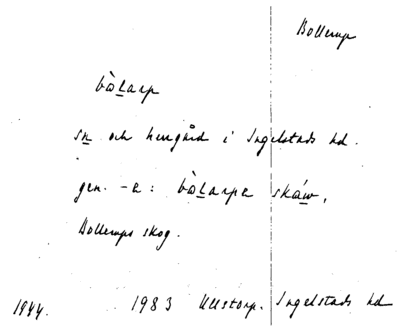 Bollerup
bò̱larp
sn och herrgård i Ingelstads hd.
gen. -a: bò̱larpa skáw,
Bollerups skog.
1944. 1983 Ullstorp. Ingelstads hd